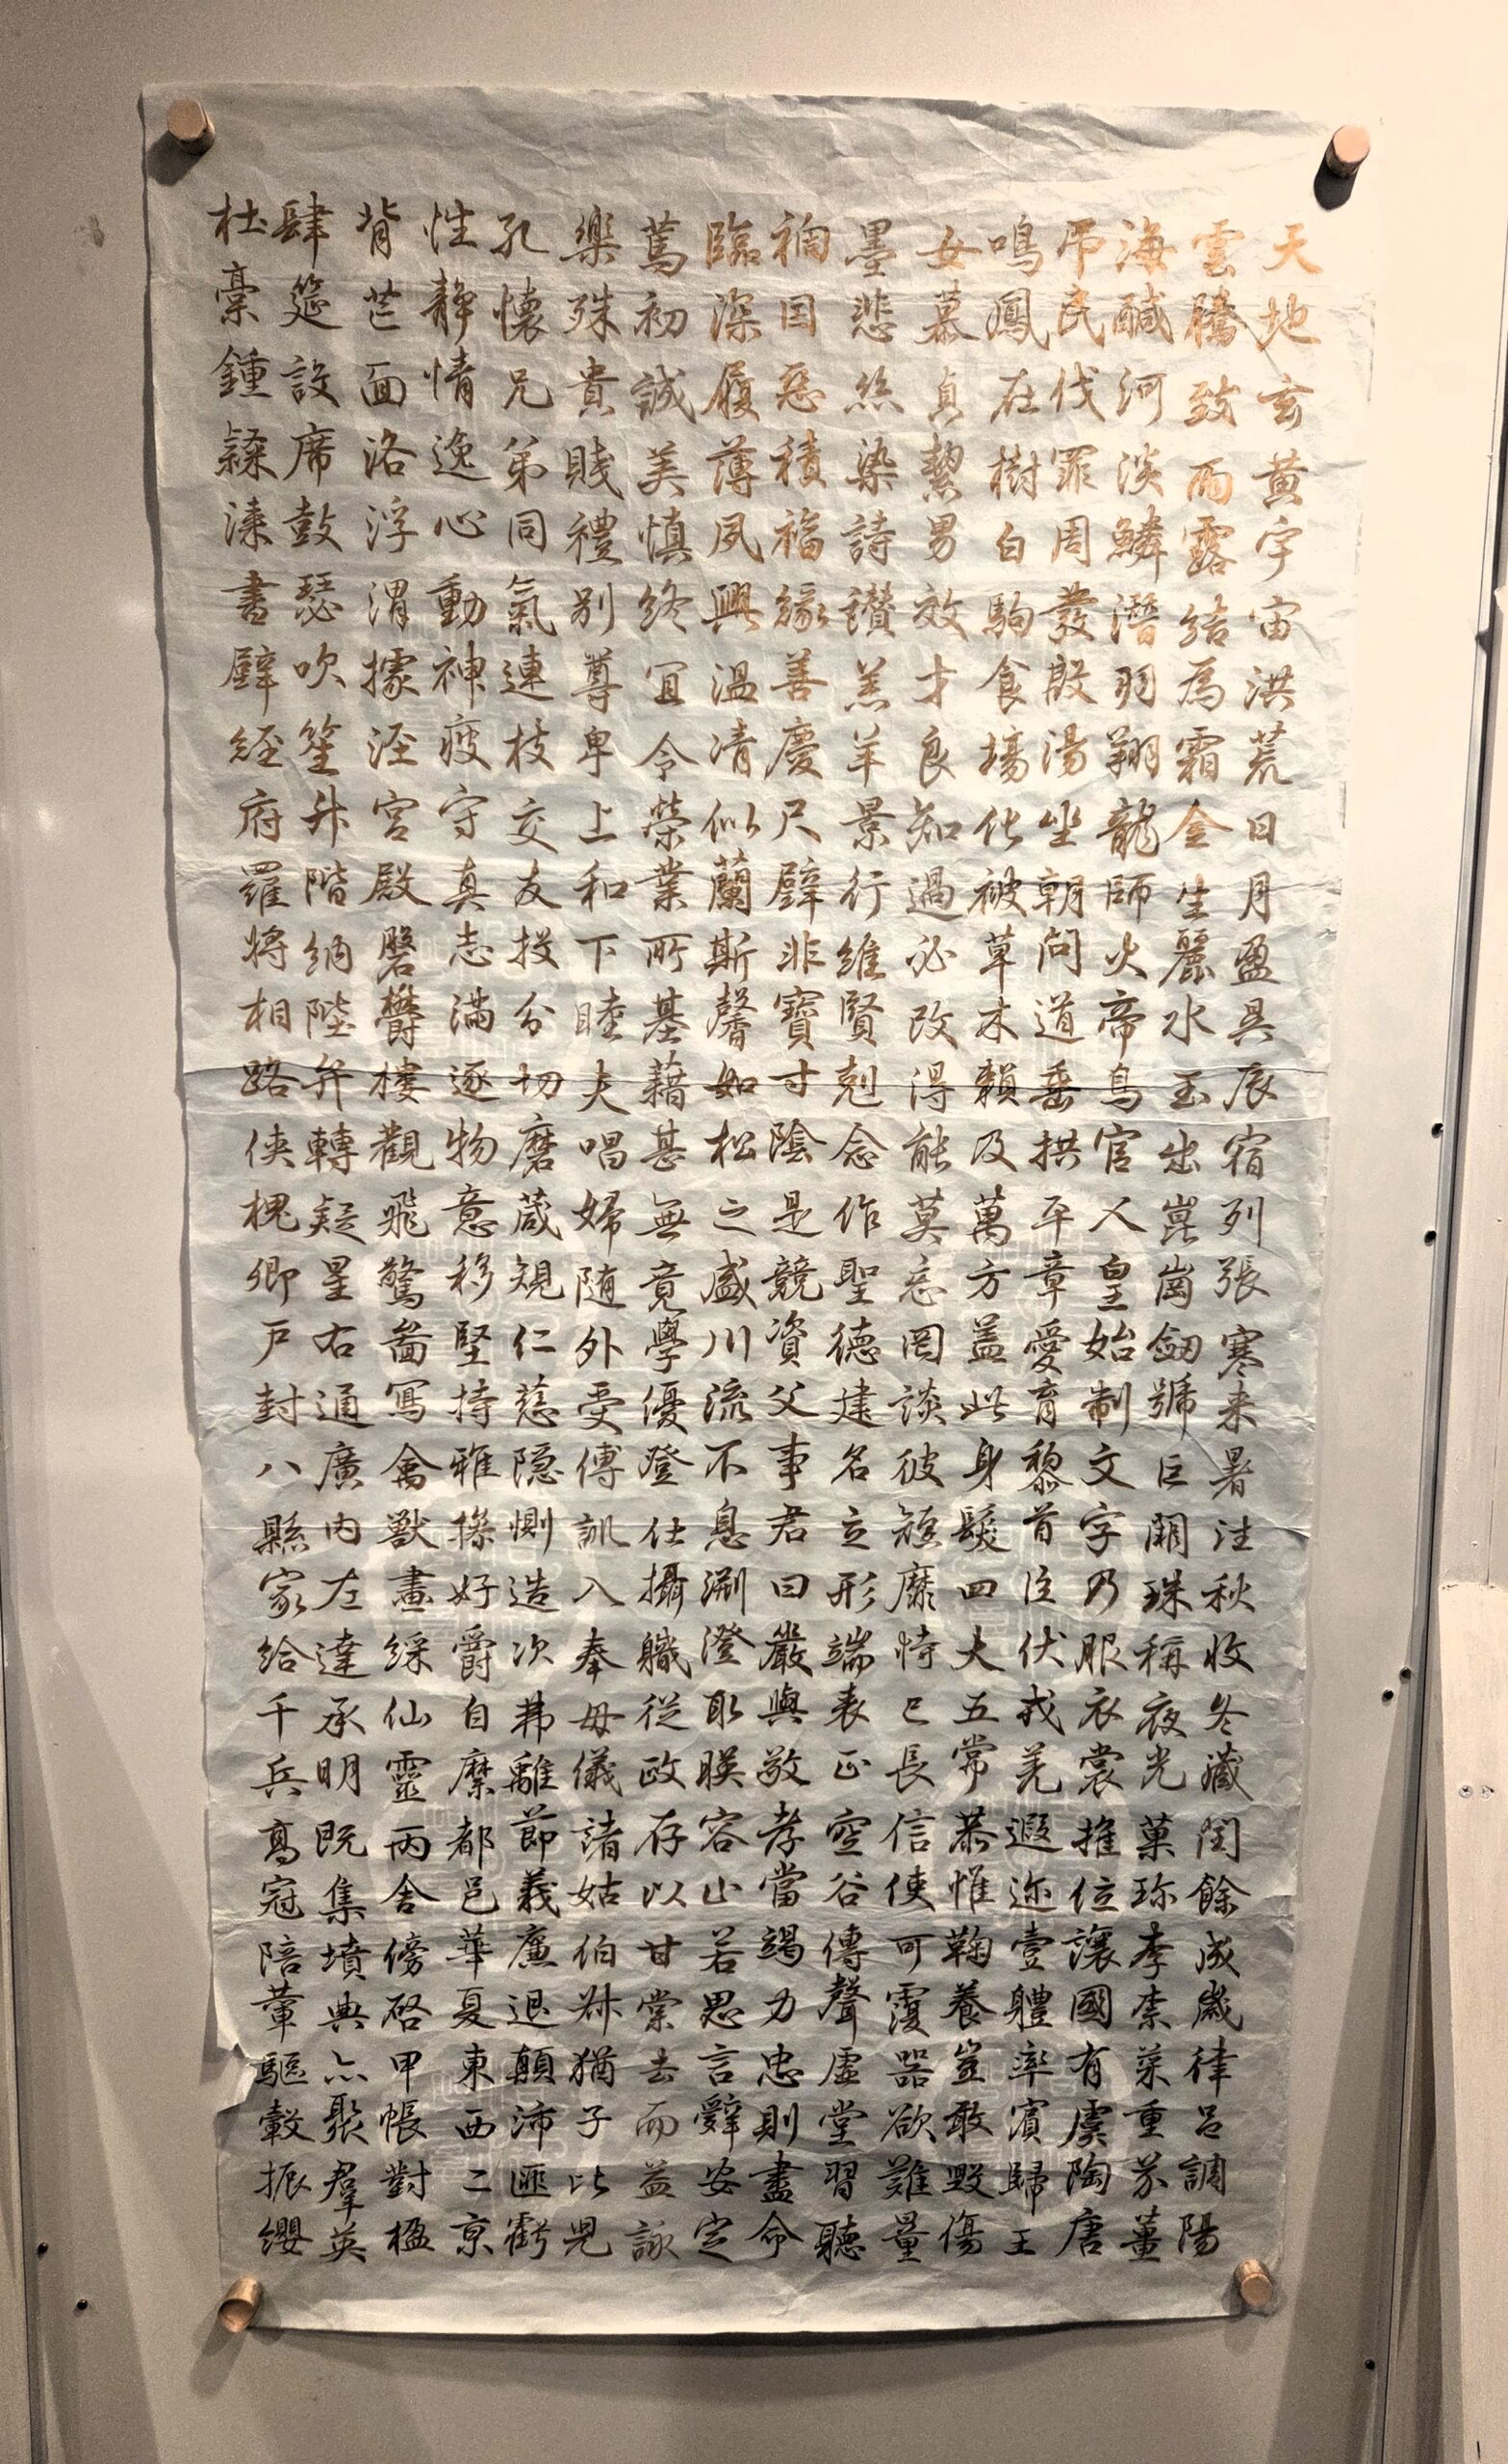 天地玄黃宇宙洪荒日月盈昃辰宿列張寒来暑往秋收冬藏閏餘成歲律呂調陽
雲騰致雨露結為霜金生麗水玉出崑崗劒號巨闕珠稱夜光菓珎李柰菜重芥薑
海鹹河淡鱗潛羽翔龍師火帝鳥官人皇始制文字乃服衣裳推位讓國有虞陶唐
弔民伐罪周發殷湯坐朝問道垂拱平章愛育黎首臣伏戎羌遐迩壹軆率賓歸王
鳴鳳在樹白駒食場化被草木賴及萬方蓋此身髮四大五常恭惟鞠養豈敢毀傷
女慕貞絜男效才良知過必改得能莫忘罔談彼短靡恃己長信使可覆器欲難量
墨悲絲染詩讃羔羊景行維賢剋念作聖德建名立形端表正空谷傳聲虛堂習聽
禍因惡積福緣善慶尺璧非寶寸陰是競資父事君曰嚴與敬孝當竭力忠則盡命
臨深履薄夙興溫清似蘭斯馨如松之盛川流不息淵澄取暎容止若思言辭安定
篤初誠美慎終宜令榮業所基藉甚無竟學優登仕攝職從政存以甘棠去而益詠
樂殊貴賤禮別尊卑上和下睦夫唱婦随外受傅訓入奉母儀諸姑伯叔猶子比兒
孔懷兄弟同氣連枝交友投分切磨箴規仁慈隱惻造次弗離節義廉退顛沛匪虧
性靜情逸心動神疲守真志滿逐物意移堅持雅操好爵自縻都邑華夏東西二京
背芒面洛浮渭據涇宮殿磐欝樓觀飛驚啚寫禽獸畫綵仙靈丙舍傍啓甲帳對楹
肆筵設席鼓瑟吹笙升階納陛弁轉疑星右通廣内左達承明既集墳典亦聚羣英
杜稾鍾隸漆書壁經府羅將相路俠槐卿戶封八縣家給千兵高冠陪輦驅轂振纓